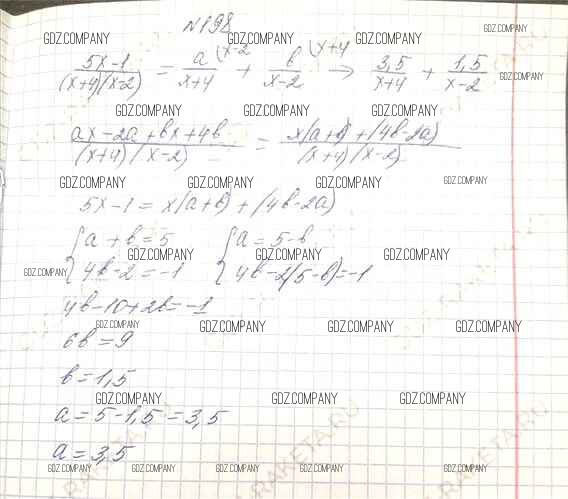 №198
GDZ.COMPANY GDZ.COMPANY GDZ.COMPANY GDZ.COMPANY
(5x-1)/((x+4)(x-2)) = a(x-2/(x+4) + b(x+4/(x-2) → 3,5/(x+4) + 1,5/(x-2)
GDZ.COMPANY
GDZ.COMPANY GDZ.COMPANY GDZ.COMPANY
(ax-2a+bx+4b)/((x+4)(x-2)) = (x(a+b)+(4b-2a))/((x+4)(x-2))
GDZ.COMPANY GDZ.COMPANY GDZ.COMPANY GDZ.COMPANY
5x-1=x(a+b)+(4b-2a)
{a+b=5 {a=5-b
GDZ.COMPANY GDZ.COMPANY GDZ.COMPANY
{4b-2=-1 {4b-2(5-b)=-1
GDZ.COMPANY
4b-10+2b=-1
GDZ.COMPANY GDZ.COMPANY GDZ.COMPANY GDZ.COMPANY
6b=9
b=1,5
GDZ.COMPANY GDZ.COMPANY GDZ.COMPANY
a=5-1,5=3,5
a=3,5
GDZ.COMPANY GDZ.COMPANY GDZ.COMPANY GDZ.COMPANY GDZ.COMPANY